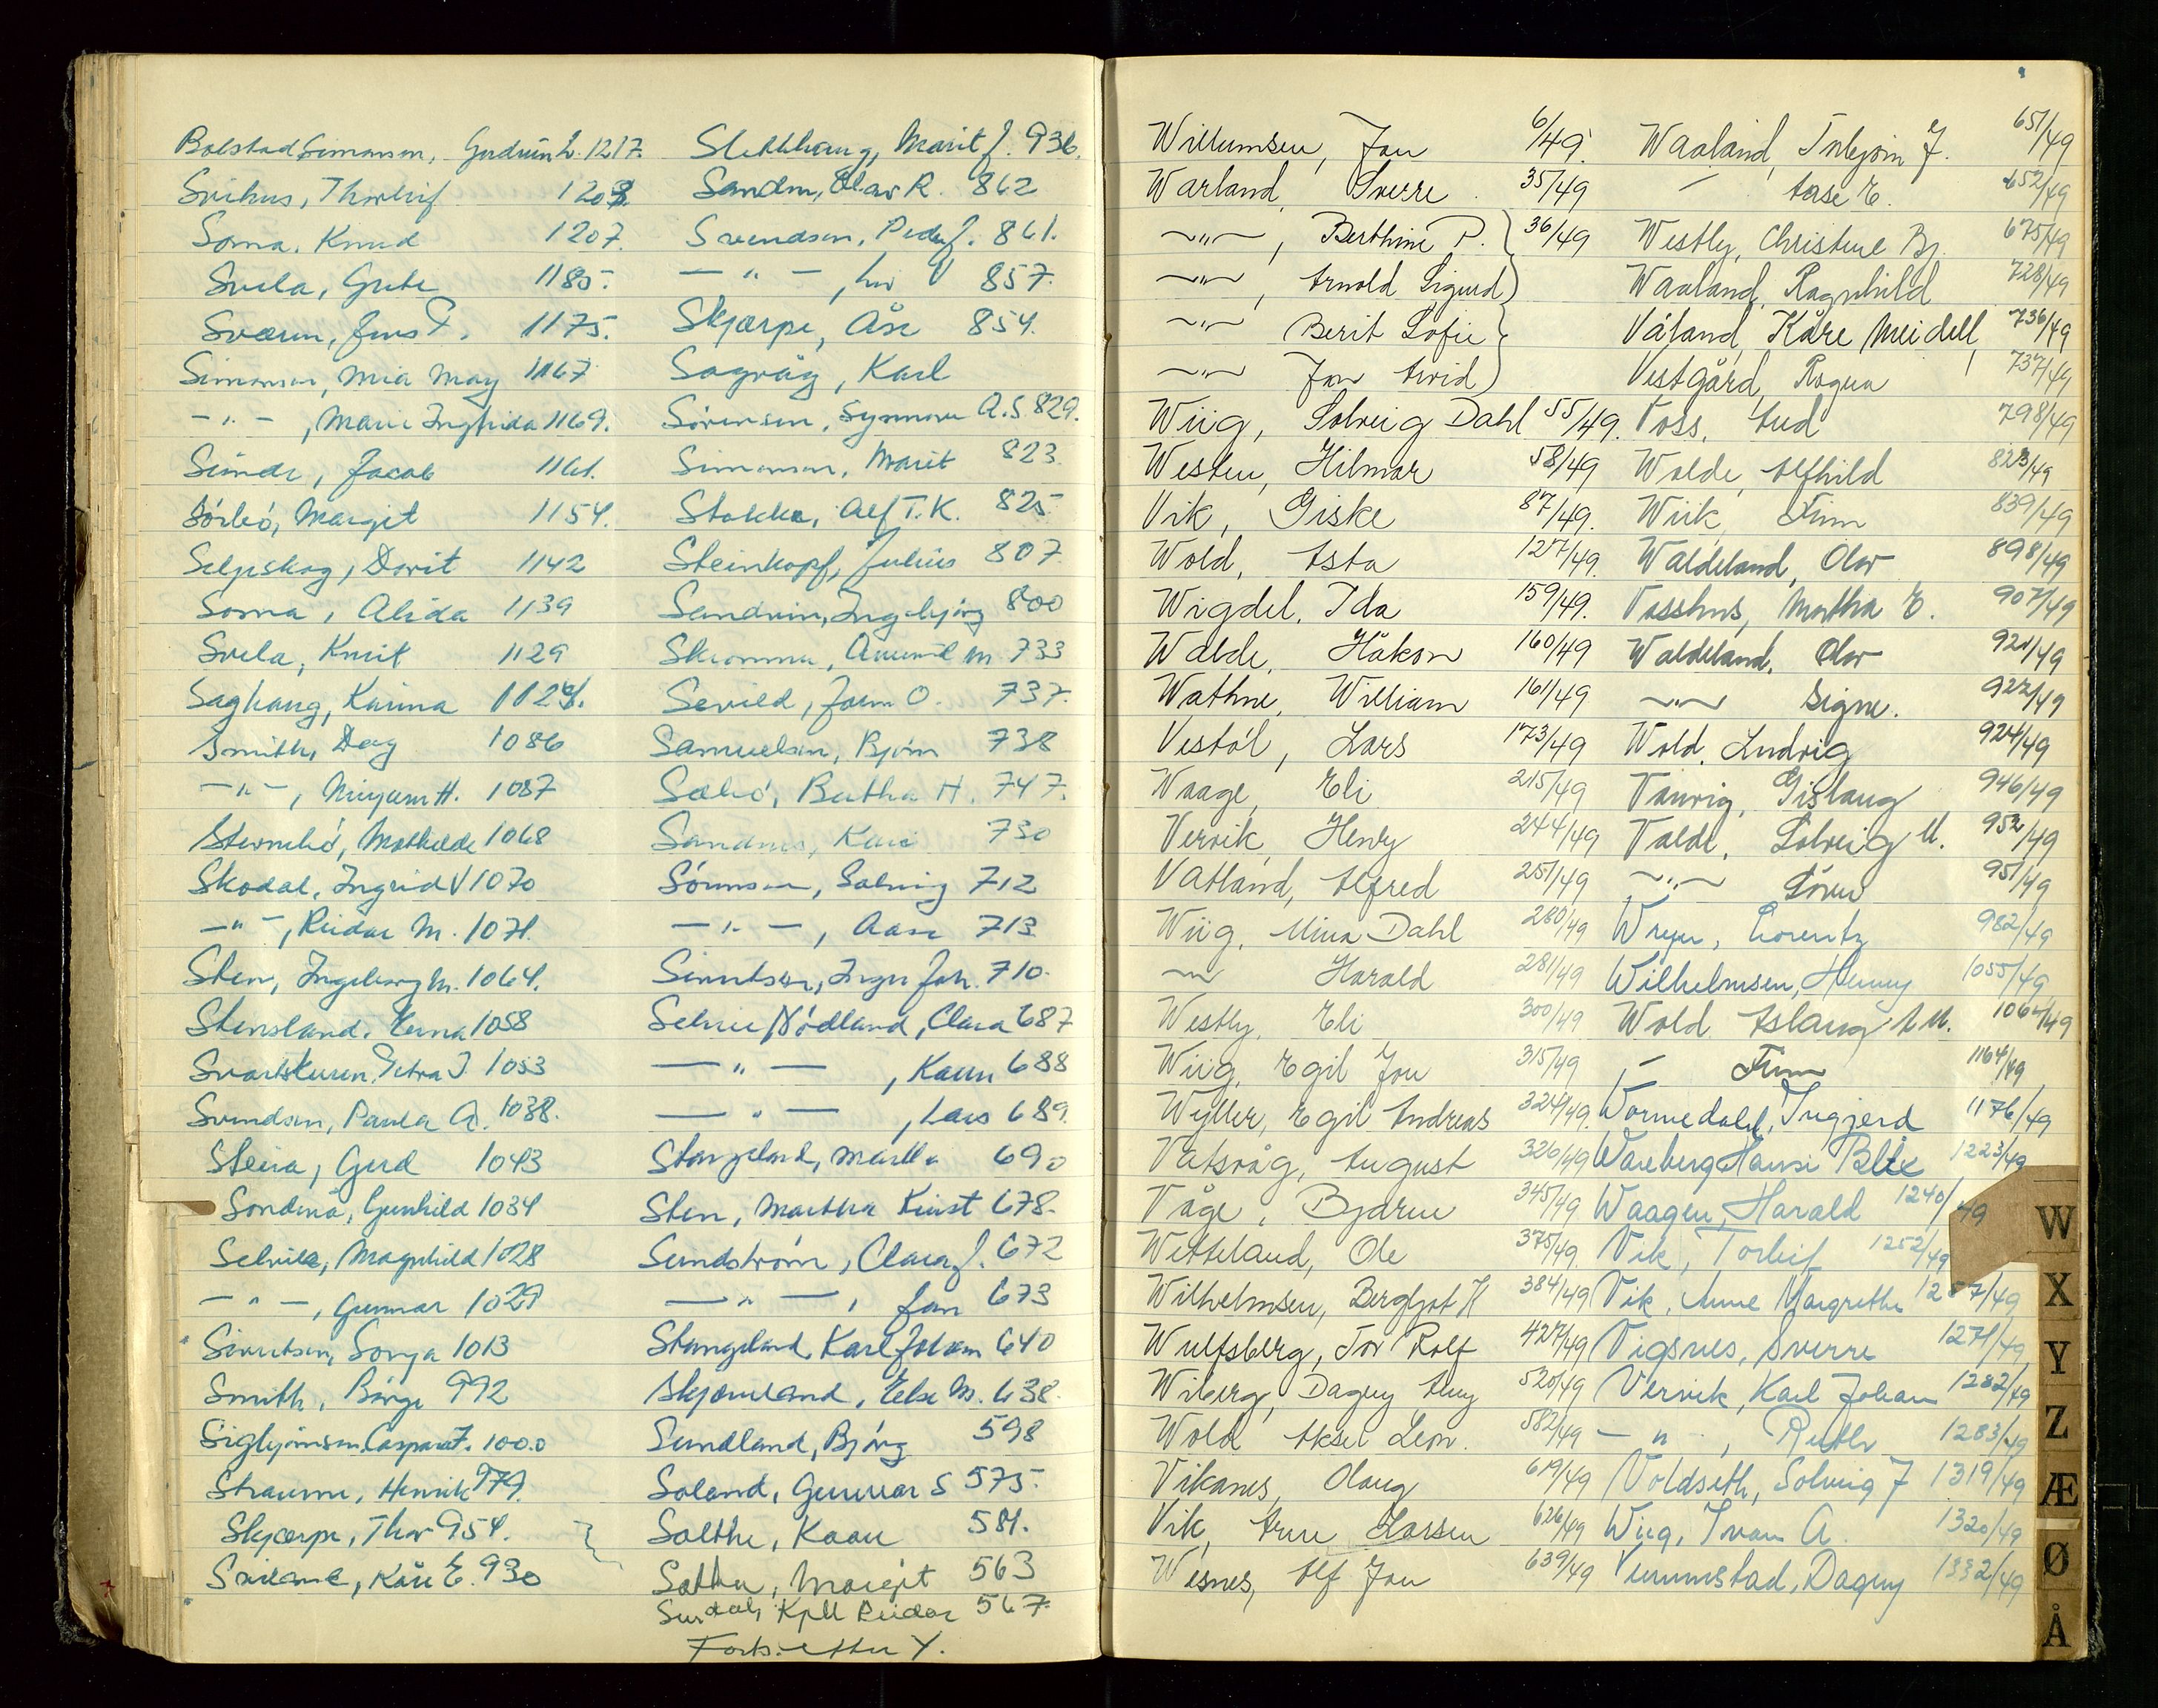 Bolstad Simonsen, Gudrun L. 1217.
Svihus, Thorleif 1208.
Soma, Knud 1207.
Svela, Grete 1185.
Sværen, Jens P. 1175.
Simonsen, Mia May 1167
- " - , Marie Inghida 1169.
Sunde, Jacob 1161.
Sörbö, Margit 1154.
Seljeskog, Dorit 1142
Soma, Alida 1139
Svela, Knut 1129
Saghaug, Karina 1124.
Smith, Dag 1086
- " - , Mirjam H. 1087
Stornebö, Mathilde 1068
Skodal, Ingrid V 1070
- " - , Reidar M. 1071.
Sten, Ingeborg M. 1064.
Stensland, Erna 1058
Svartskuren, Petra J. 1053
Svendsen, Paula A. 1038.
Steira, Gerd 1043
Sondenå, Gunhild 1034
Selvik, Magnhild 1028
- " - , Gunnar 1029
Sivertsen, Sonja 1013
Smith, Börge 992
Sigbjörnsen, Caspara F. 1000
Straume, Henrik 979.
Skjærpe, Thor 954.
Kåre E. 930
Slethhaug, Marit J. 936.
Olav R. 862
Svendsen, Peder J. 861.
- " - , Liv V 857.
Skjærpe, Åse 854.
Sagvåg, Karl
Sörensen, Synnøve A.S. 829.
Simonsen, Marit 823.
Stokke, Alf T.K. 825
Steinkopf, Julius 807.
Sandvin, Ingebjörg 800
733
737.
Samuelsen, Björn 738
Sælid, Bertha H. 747.
Sandnes, Kari 730
Sörensen, Solveig 712
- " - , Aase 713
Sivertsen, Inger Joh. 710.
Selvie Nödland, Clara 687
- " - , Karen 688
- " - , Lars 689.
Stangeland, Martha 690
Sten, Martha Kvist 678.
Sundström, Clara J. 672
- " - , Jan 673
Stangeland, Karl Johan 640
Skjæveland, Else M. 638.
Sundland, Björg 598
Soland, Gunnar S 575.
Salthe, Kaare 581.
Salthe, Margit 563
Surdal, Kjell Reidar 567.
Forts. etter Y.
Willumsen, Jan 6/49.
Warland, Sverre 35/49
-"- , Berthine P. } 36/49
-"- , Arnold Sigurd )
-"- Berit Sofie }
-"- Jan Arvid )
Wiig, Solveig Dahl 55/49.
Westen, Hilmar 58/49
Vik, Giske 87/49.
Wold, Asta 127/49.
Wigdel, Ida 159/49.
Walde, Håkon 160/49
Wathne, William 161/49
Vestöl, Lars 173/49
Waage, Eli 215/49
Vervik, Henry 244/49
Vatland, Alfred 251/49
Wiig, Mina Dahl 280/49
-"- Harald 281/49
Westly, Eli 300/49
Wiig, Egil Jon 315/49
Wyller, Egil Andreas 324/49.
Vatsvåg, August 326/49
Våge, Bjarne 345/49
Wetteland, Ole 375/49
Wilhelmsen, Bergljot H 384/49
Wulfsberg, Tor Rolf 427/49
Wiberg, Dagny Amy 520/49
Wold Aksel Leon. 582/49
Vikanes, Olaug 619/49
Vik, Arne Larsen 626/49
Wesnes, Alf Jan 639/49
Waaland, Inbjörn J. 651/49
- Aase E. 652/49
Westly, Christine Bj. 675/49
Waaland, Ragnhild 728/49
Våland, Kåre Meidell, 736/49
Vestgård, Ragna 737/49
Voss, Aud 798/49
Wolde, Alfhild 823/49
Wiik, Finn 839/49
Waldeland, Olav 898/49
Vasshus, Martha E. 907/49
Waldeland, Olav 921/49
-"- Signe. 922/49
Wold, Ludvig 924/49
Vaurig, Gislaug 946/49
Valde, Solveig M. 952/49
-"- Sören 951/49
Weyer, Lorentz 982/49
Wilhelmsen, Henny 1055/49
Wold, Aslaug A M. 1064/49
- Finn 1164/49
Wormedahl, Ingjerd 1176/49
Wareberg, Hansi Blix 1223/49
Waagen, Harald 1240/49
Vik, Torleif 1252/49
Vik, Anne Margrethe 1257/49
Vigsnes, Sverre 1271/49
Vervik, Karl Johan 1282/49
- " , Ruth 1283/49
Voldseth, Solveig J 1319/49
Wiig, Ivan A. 1320/49
Vemmestad, Dagny 1332/49
W
X
Y
Z
Æ
Ø
Å